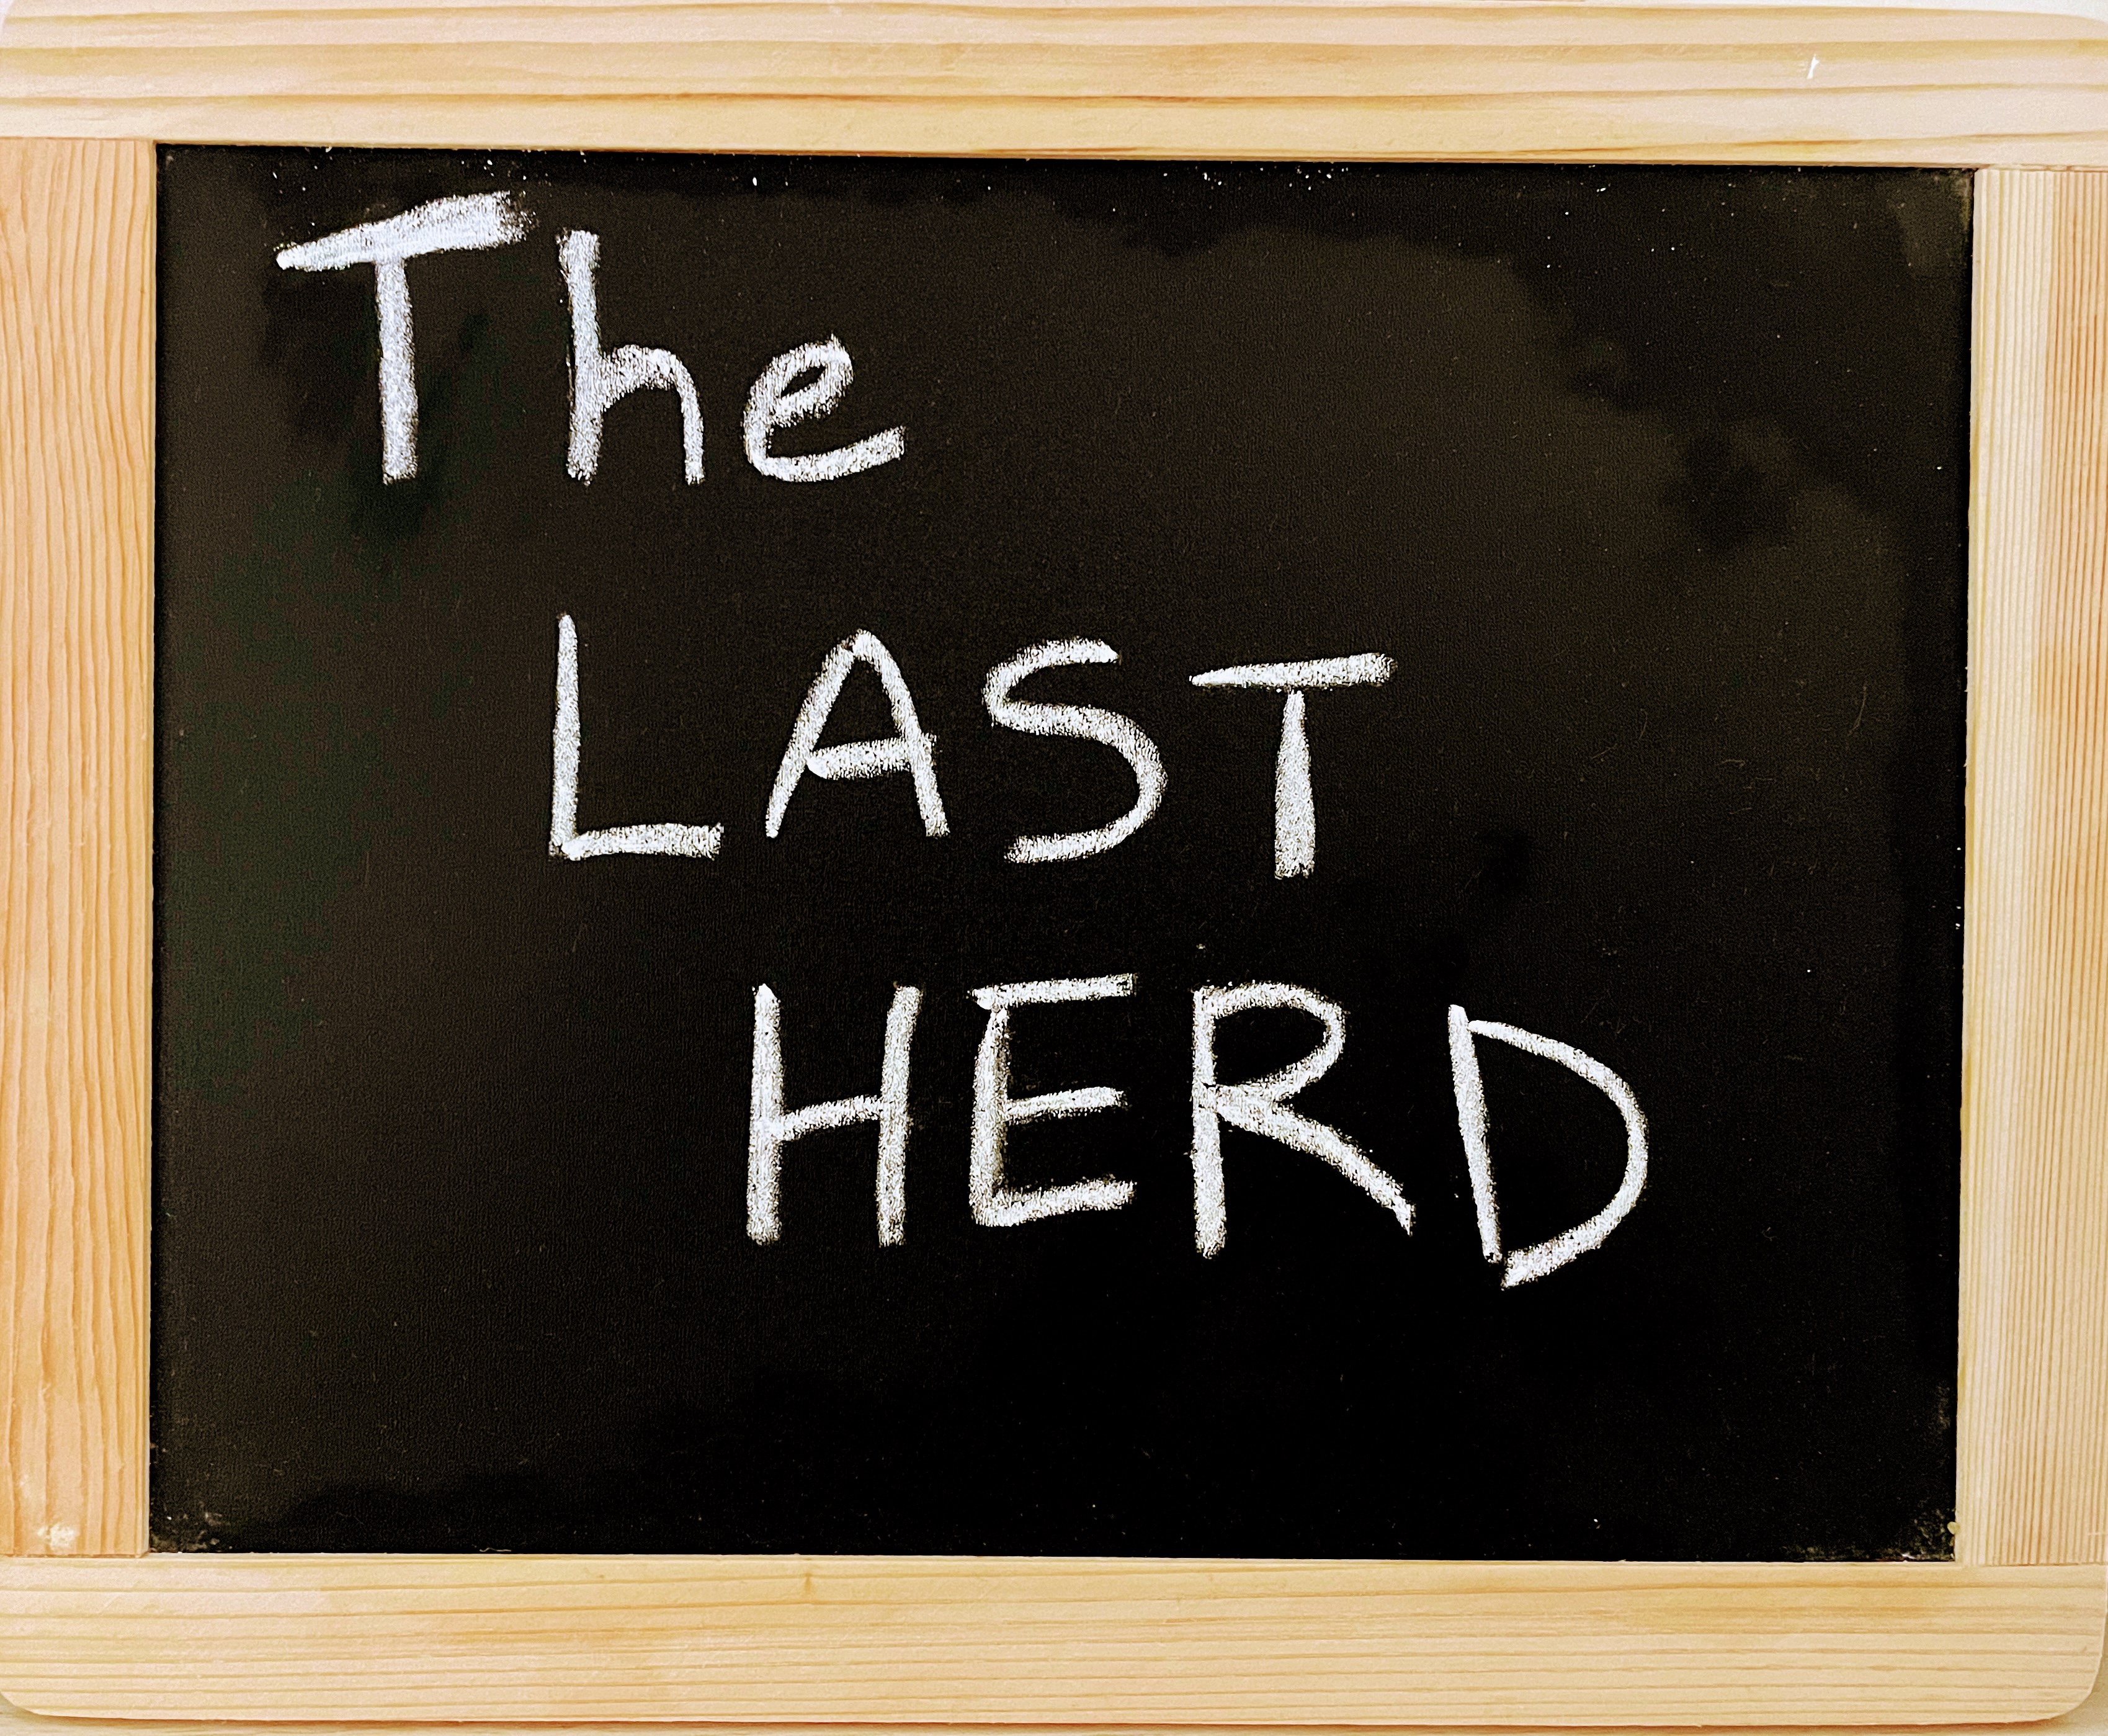 The
LAST
HERD